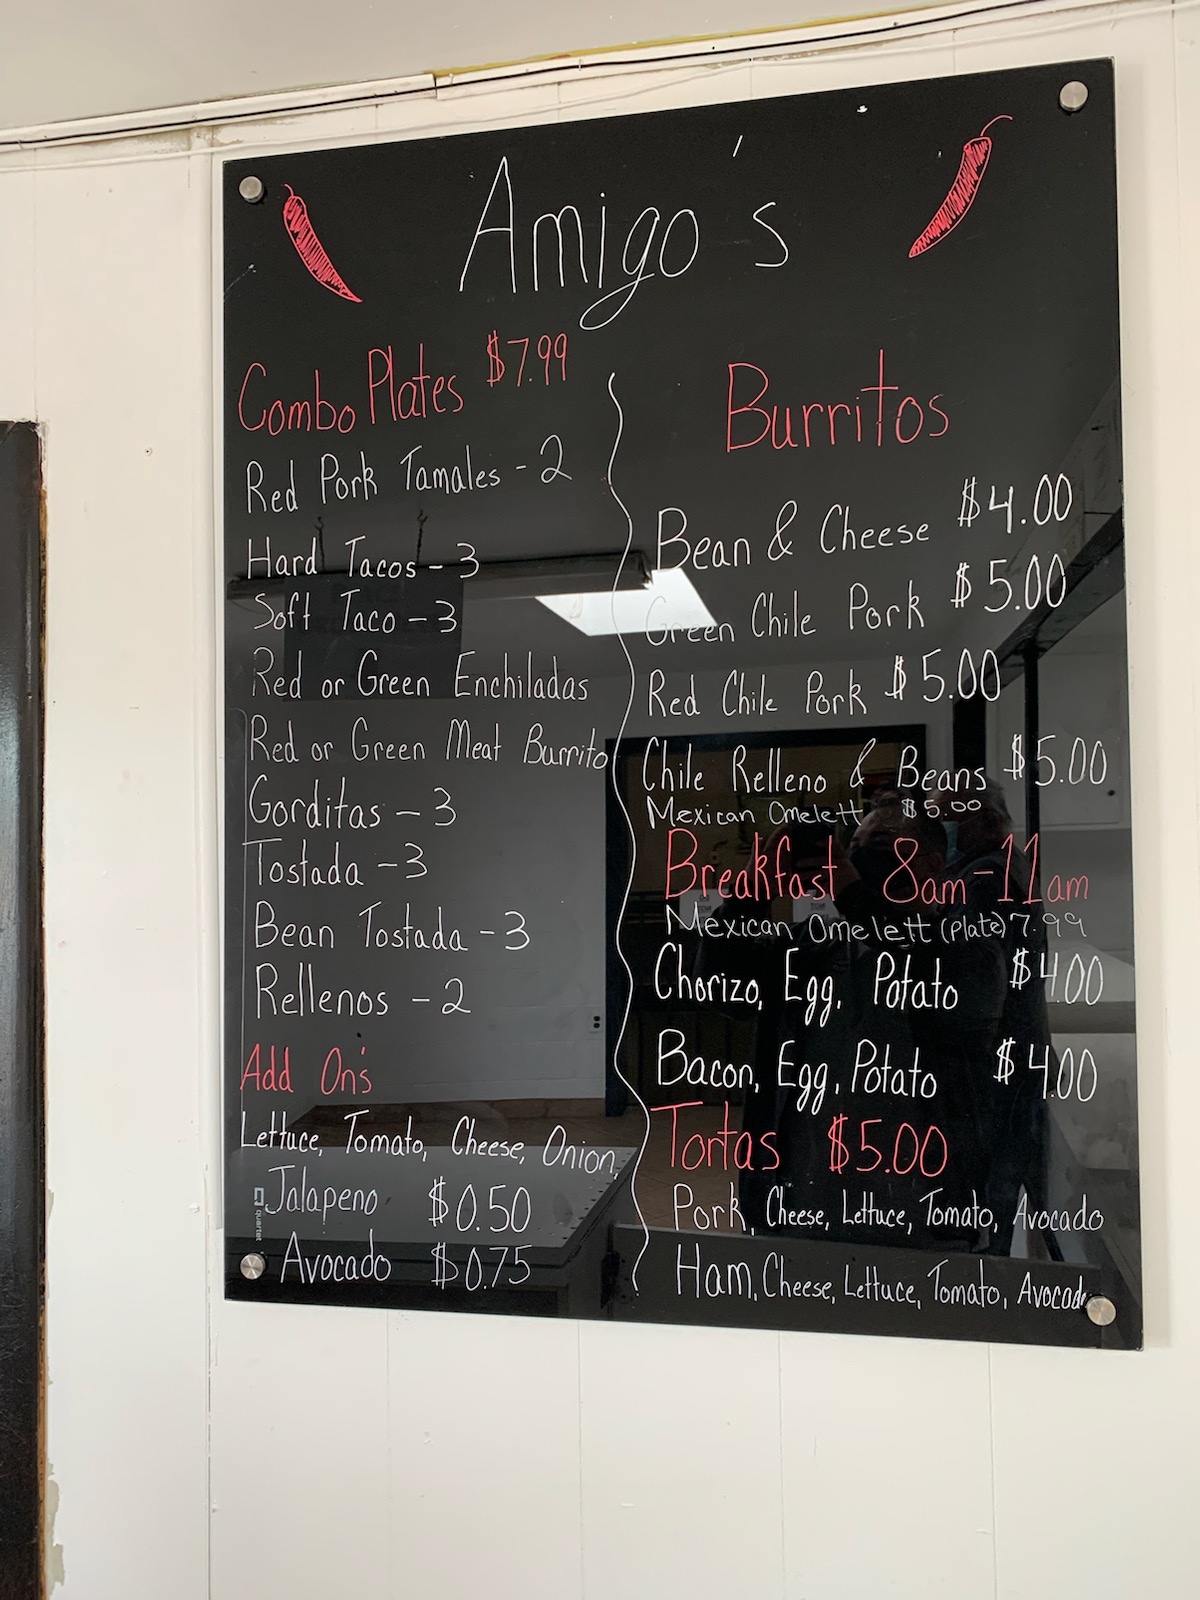 Amigo's
Combo Plates $7.99
Red Pork Tamales - 2
Hard Tacos - 3
Soft Taco - 3
Red or Green Enchiladas
Red or Green Meat Burrito
Gorditas - 3
Tostada - 3
Bean Tostada - 3
Rellenos - 2
Add On's
Lettuce, Tomato, Cheese, Onion,
Jalapeno $0.50
Avocado $0.75
quartet
Burritos
Bean & Cheese $4.00
Green Chile Pork $5.00
Red Chile Pork $5.00
Chile Relleno & Beans $5.00
Mexican Omelett $5.00
Breakfast 8am-11am
Mexican Omelett (Plate) 7.99
Chorizo, Egg, Potato $4.00
Bacon, Egg, Potato $4.00
Tortas $5.00
Pork, Cheese, Lettuce, Tomato, Avocado
Ham, Cheese, Lettuce, Tomato, Avocado